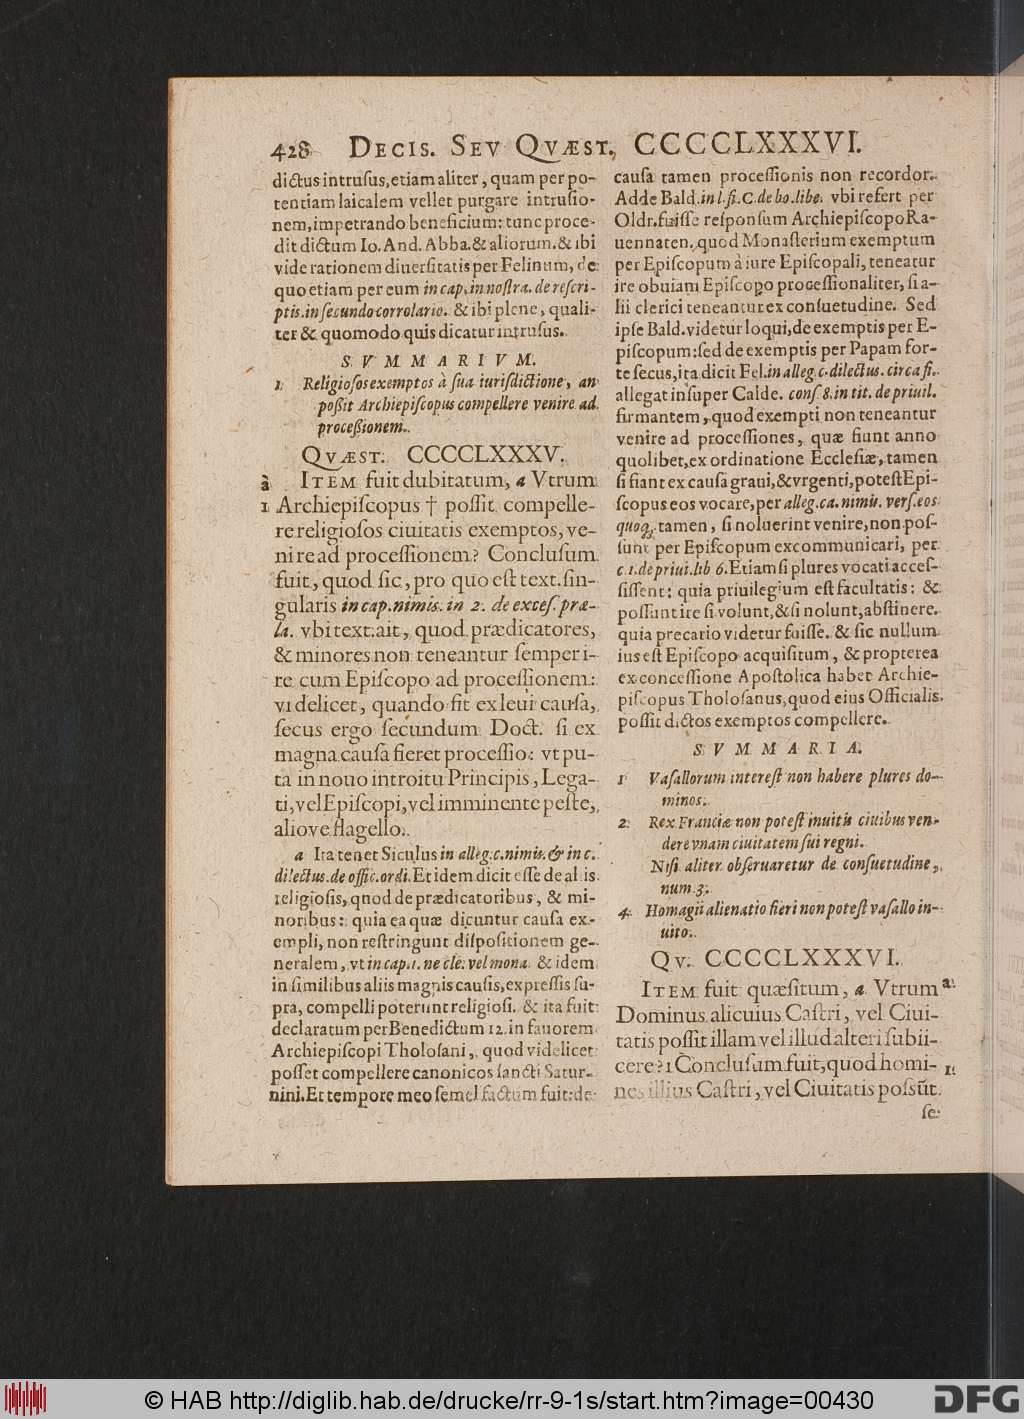 428 DECIS. SEV QVÆST. CCCCCLXXXVI.
dictus intrusus, etiam aliter, quam per po-
tentiam laicalem vellet purgare intrusio-
nem, impetrando beneficium: tunc proce-
dit dictum Io. And. Abba. & aliorum. & ibi
vide rationem diuersitatis per Felinum, de
quo etiam per eum in cap. in nostra. de rescri-
ptis. in secundo corrolario. & ibi plene, quali-
ter & quomodo quis dicatur intrusus.
SVMMARIVM.
1 Religiosos exemptos à sua iurisdictione, an
poßit Archiepiscopus compellere venire ad
proceßionem.
QVÆST. CCCCCLXXXV.
a ITEM fuit dubitatum, a Vtrum
1 Archiepiscopus † possit compelle-
re religiosos ciuitatis exemptos, ve-
nire ad processionem? Conclusum
fuit, quod sic, pro quo est text. sin-
gularis in cap. nimis. in 2. de exces. præ-
la. vbi text. ait, quod prædicatores,
& minores non teneantur semper i-
re cum Episcopo ad processionem:
videlicet, quando fit ex leui causa,
secus ergo secundum Doct. si ex
magna causa fieret processio: vt pu-
ta in nouo introitu Principis, Lega-
ti, vel Episcopi, vel imminente peste,
alio ve flagello.
a Ita tenet Siculus in alleg. c. nimis. & in c.
dilectus. de offic. ordi. Et idem dicit esse de aliis
religiosis, quod de prædicatoribus, & mi-
noribus: quia ea quæ dicuntur causa ex-
empli, non restringunt dispositionem ge-
neralem, vt in cap. 1. ne cle. vel mona. & idem
in similibus aliis magnis causis, expressis su-
pra, compelli poterunt religiosi. & ita fuit
declaratum per Benedictum 12. in fauorem
Archiepiscopi Tholosani, quod videlicet
posset compellere canonicos sancti Satur-
nini. Et tempore meo semel factum fuit: de
causa tamen processionis non recordor.
Adde Bald. in l. fi. C. de bo. libe. vbi refert per
Oldr. fuisse responsum Archiepiscopo Ra-
uennaten. quod Monasterium exemptum
per Episcopum à iure Episcopali, teneatur
ire obuiam Episcopo processionaliter, si a-
lii clerici teneantur ex consuetudine. Sed
ipse Bald. videtur loqui, de exemptis per E-
piscopum: sed de exemptis per Papam for-
te secus, ita dicit Fel. in alleg. c. dilectus. circa fi.
allegat insuper Calde. cons. 8. in tit. de priuil.
firmantem, quod exempti non teneantur
venire ad processiones, quæ fiunt anno
quolibet, ex ordinatione Ecclesiæ, tamen
si fiant ex causa graui, & vrgenti, potest Epi-
scopus eos vocare, per alleg. ca. nimis. vers. eos
quoq; tamen, si noluerint venire, non pos-
sunt per Episcopum excommunicari, per
c. 1. de priui. lib 6. Etiam si plures vocati acces-
sissent: quia priuilegium est facultatis: &
possunt ire si volunt, & si nolunt, abstinere.
quia precario videtur fuisse. & sic nullum
ius est Episcopo acquisitum, & propterea
ex concessione Apostolica habet Archie-
piscopus Tholosanus, quod eius Officialis
possit dictos exemptos compellere.
SVMMARIA.
1 Vasallorum interest non habere plures do-
minos.
2 Rex Franciæ non potest inuitis ciuibus ven-
dere vnam ciuitatem sui regni.
Nisi aliter obseruaretur de consuetudine,
num. 3.
4 Homagii alienatio fieri non potest vasallo in-
uito.
QV. CCCCCLXXXVI.
ITEM fuit quæsitum, a Vtrum a
Dominus alicuius Castri, vel Ciui-
tatis possit illam vel illud alteri subii-
cere? 1 Conclusum fuit, quod homi- 1
nes illius Castri, vel Ciuitatis possũt
se
© HAB http://diglib.hab.de/drucke/rr-9-1s/start.htm?image=00430
DFG